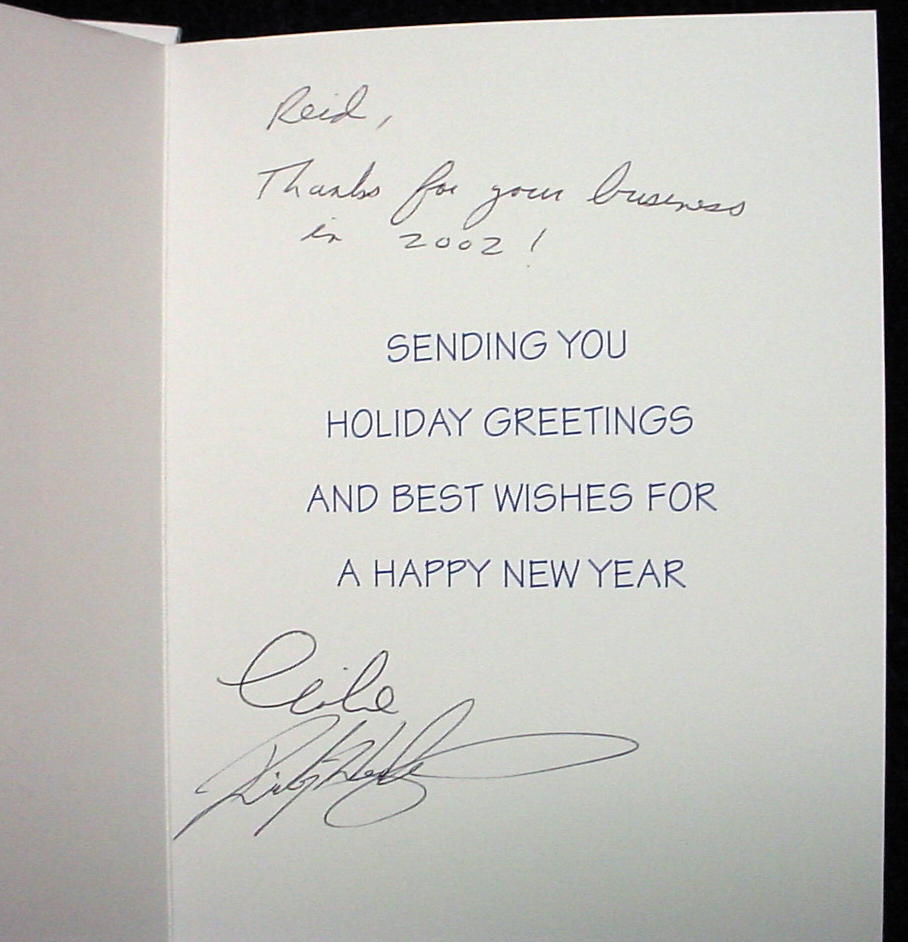 Reid,
Thanks for your business
in 2002!
SENDING YOU
HOLIDAY GREETINGS
AND BEST WISHES FOR
A HAPPY NEW YEAR